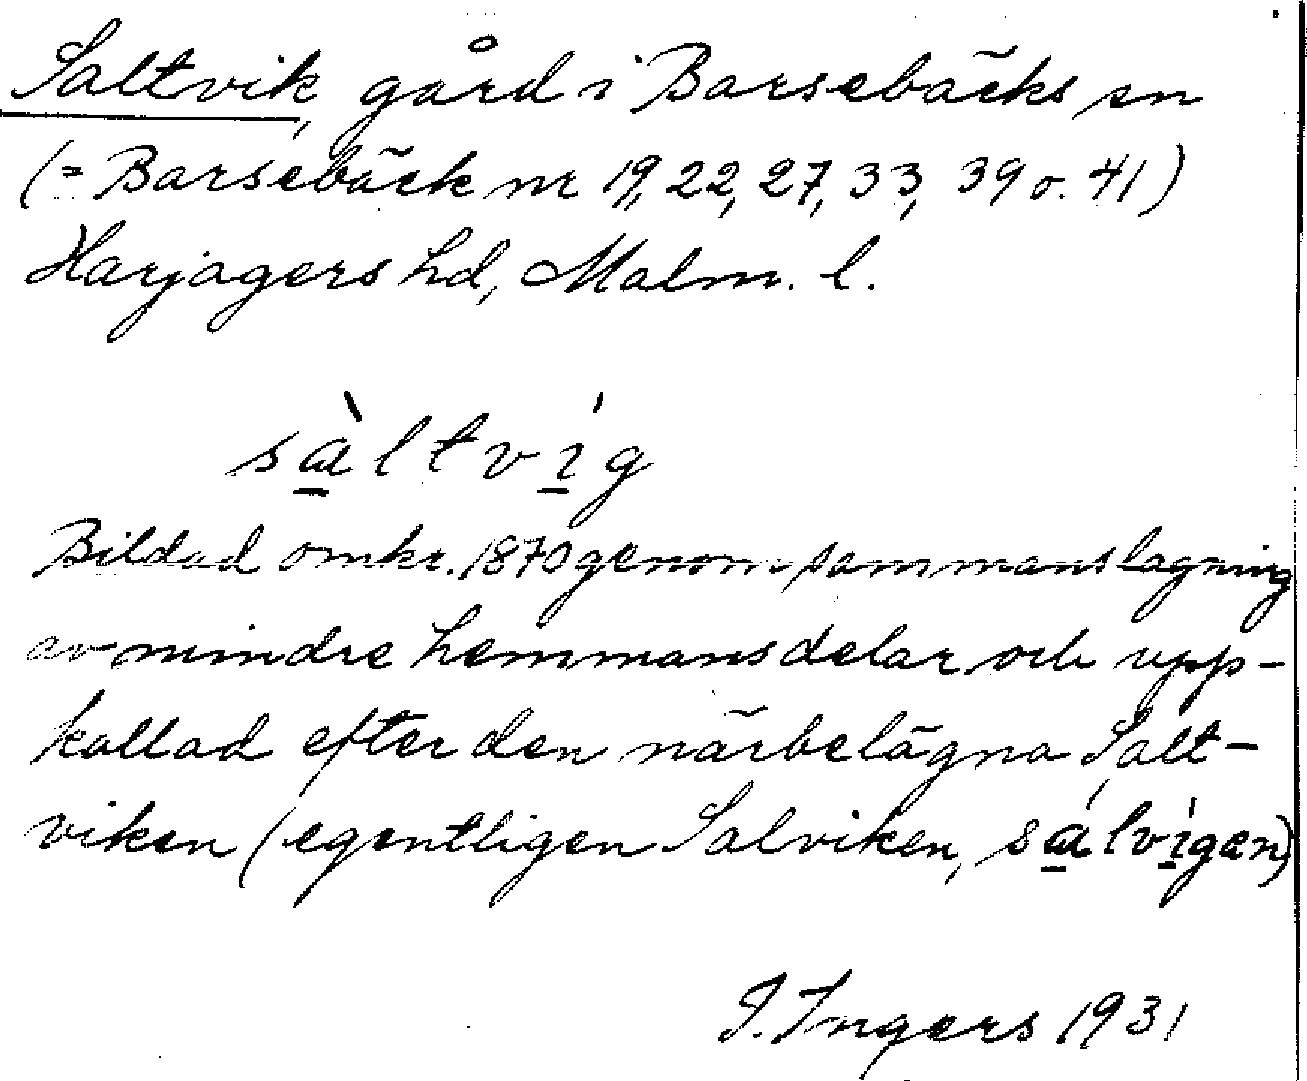 Saltvik, gård i Barsebäcks sn
(= Barsebäck nr 19, 22, 27, 33, 39 o. 41)
Harjagers hd, Malm. l.
sàltvíg
Bildad omkr. 1870 genom sammanslagning
av mindre hemmansdelar och upp-
kallad efter den närbelägna Salt-
viken (egentligen Salviken, sálvìgen)
I. Ingers 1931